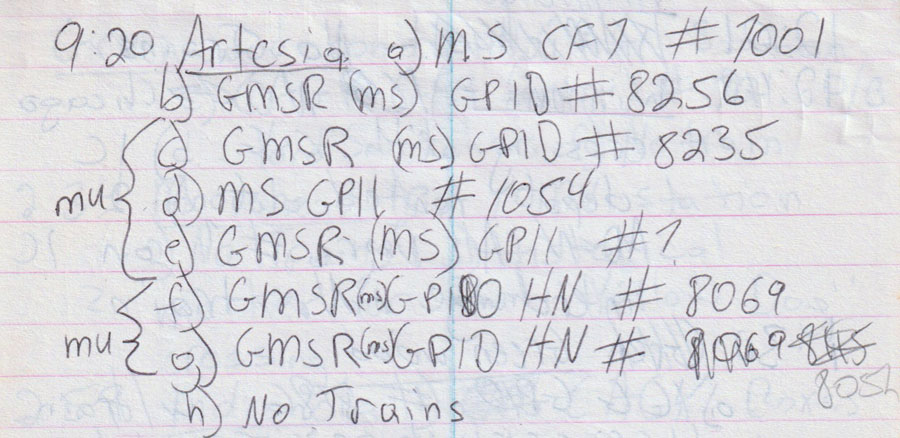 9:20 Artesia a) MS CF7 #7001
b) GMSR (ms) GP10 # 8256
mu { c) GMSR (ms) GP10 # 8235
d) MS GP11 # 1054
e) GMSR (MS) GP11 #?
mu { f) GMSR(ms)GP10 HN # 8069
g) GMSR(ms)GP10 HN #
8052
h) No Trains